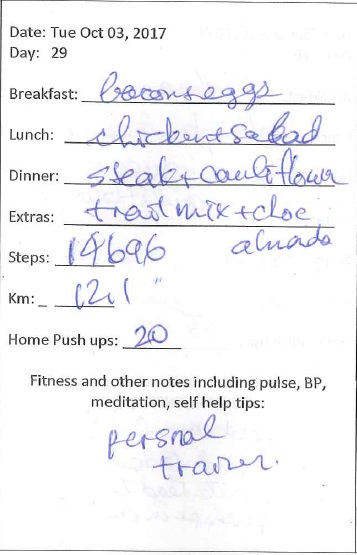 Date: Tue Oct 03, 2017
Day: 29
Breakfast: bacon & eggs
Lunch: chicken + salad
Dinner: steak + cauliflower
Extras: trail mix + choc
almonds
Steps: 14696
Km: 12.1
Home Push ups: 20
Fitness and other notes including pulse, BP,
meditation, self help tips:
personal
trainer.